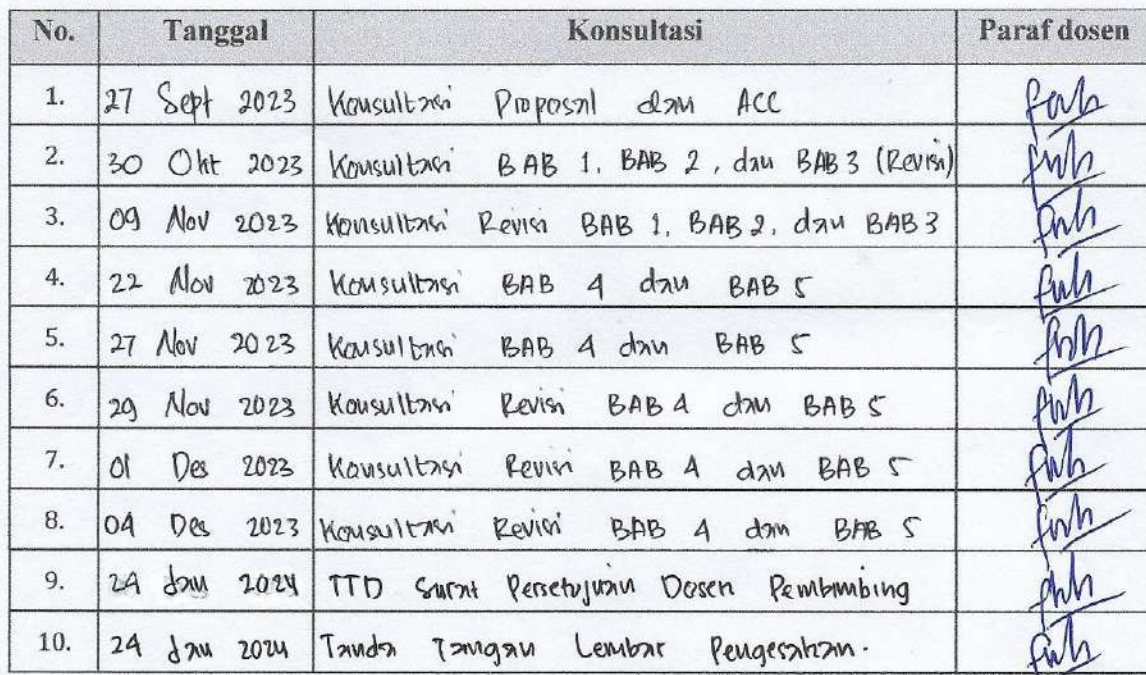 No. Tanggal Konsultasi Paraf dosen
1. 27 Sept 2023 Konsultasi Proposal dan ACC
2. 30 Okt 2023 Konsultasi BAB 1, BAB 2, dan BAB 3 (Revisi)
3. 09 Nov 2023 Konsultasi Revisi BAB 1, BAB 2, dan BAB 3
4. 22 Nov 2023 Konsultasi BAB 4 dan BAB 5
5. 27 Nov 2023 Konsultasi BAB 4 dan BAB 5
6. 29 Nov 2023 Konsultasi Revisi BAB 4 dan BAB 5
7. 01 Des 2023 Konsultasi Revisi BAB 4 dan BAB 5
8. 04 Des 2023 Konsultasi Revisi BAB 4 dan BAB 5
9. 24 Jan 2024 TTD Surat Persetujuan Dosen Pembimbing
10. 24 Jan 2024 Tanda Tangan Lembar Pengesahan.